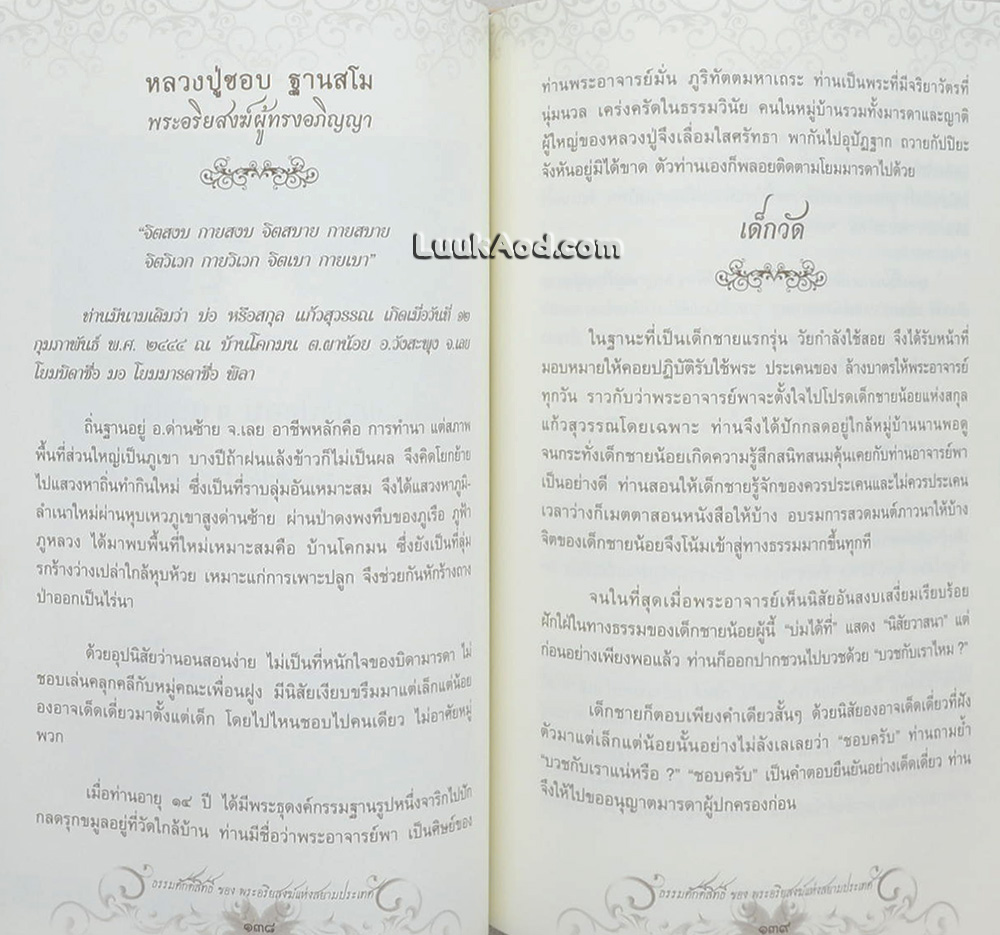 หลวงปู่ชอบ ฐานสโม
พระอริยสงฆ์ผู้ทรงอภิญญา
“จิตสงบ กายสงบ จิตสบาย กายสบาย
จิตวิเวก กายวิเวก จิตเบา กายเบา”
ท่านมีนามเดิมว่า บ่อ หรือสกุล แก้วสุวรรณ เกิดเมื่อวันที่ ๑๒
กุมภาพันธ์ พ.ศ. ๒๔๔๔ ณ บ้านโคกมน ต.ผาน้อย อ.วังสะพุง จ.เลย
โยมบิดาชื่อ มอ โยมมารดาชื่อ พิลา
ถิ่นฐานอยู่ อ.ด่านซ้าย จ.เลย อาชีพหลักคือ การทำนา แต่สภาพ
พื้นที่ส่วนใหญ่เป็นภูเขา บางปีถ้าฝนแล้งข้าวก็ไม่เป็นผล จึงคิดโยกย้าย
ไปแสวงหาถิ่นทำกินใหม่ ซึ่งเป็นที่ราบลุ่มอันเหมาะสม จึงได้แสวงหาภูมิ-
ลำเนาใหม่ผ่านหุบเหวภูเขาสูงด่านซ้าย ผ่านป่าดงพงทึบของภูเรือ ภูฟ้า
ภูหลวง ได้มาพบพื้นที่ใหม่เหมาะสมคือ บ้านโคกมน ซึ่งยังเป็นที่ลุ่ม
รกร้างว่างเปล่าใกล้หุบห้วย เหมาะแก่การเพาะปลูก จึงช่วยกันหักร้างถาง
ป่าออกเป็นไร่นา
ด้วยอุปนิสัยว่านอนสอนง่าย ไม่เป็นที่หนักใจของบิดามารดา ไม่
ชอบเล่นคลุกคลีกับหมู่คณะเพื่อนฝูง มีนิสัยเงียบขรึมมาแต่เล็กแต่น้อย
องอาจเด็ดเดี่ยวมาตั้งแต่เด็ก โดยไปไหนชอบไปคนเดียว ไม่อาศัยหมู่
พวก
เมื่อท่านอายุ ๑๔ ปี ได้มีพระธุดงค์กรรมฐานรูปหนึ่งจาริกไปปัก
กลดรุกขมูลอยู่ที่วัดใกล้บ้าน ท่านมีชื่อว่าพระอาจารย์พา เป็นศิษย์ของ
ธรรมศักดิ์สิทธิ์ ของ พระอริยสงฆ์แห่งสยามประเทศ
๑๓๘
ท่านพระอาจารย์มั่น ภูริทัตตมหาเถระ ท่านเป็นพระที่มีจริยาวัตรที่
นุ่มนวล เคร่งครัดในธรรมวินัย คนในหมู่บ้านรวมทั้งมารดาและญาติ
ผู้ใหญ่ของหลวงปู่จึงเลื่อมใสศรัทธา พากันไปอุปัฏฐาก ถวายกัปปิยะ
จังหันอยู่มิได้ขาด ตัวท่านเองก็พลอยติดตามโยมมารดาไปด้วย
เด็กวัด
ในฐานะที่เป็นเด็กชายแรกรุ่น วัยกำลังใช้สอย จึงได้รับหน้าที่
มอบหมายให้คอยปฏิบัติรับใช้พระ ประเคนของ ล้างบาตรให้พระอาจารย์
ทุกวัน ราวกับว่าพระอาจารย์พาจะตั้งใจไปโปรดเด็กชายน้อยแห่งสกุล
แก้วสุวรรณโดยเฉพาะ ท่านจึงได้ปักกลดอยู่ใกล้หมู่บ้านนานพอดู
จนกระทั่งเด็กชายน้อยเกิดความรู้สึกสนิทสนมคุ้นเคยกับท่านอาจารย์พา
เป็นอย่างดี ท่านสอนให้เด็กชายรู้จักของควรประเคนและไม่ควรประเคน
เวลาว่างก็เมตตาสอนหนังสือให้บ้าง อบรมการสวดมนต์ภาวนาให้บ้าง
จิตของเด็กชายน้อยจึงโน้มเข้าสู่ทางธรรมมากขึ้นทุกที
จนในที่สุดเมื่อพระอาจารย์เห็นนิสัยอันสงบเสงี่ยมเรียบร้อย
ฝักใฝ่ในทางธรรมของเด็กชายน้อยผู้นี้ “บ่มได้ที่” แสดง “นิสัยวาสนา” แต่
ก่อนอย่างเพียงพอแล้ว ท่านก็ออกปากชวนไปบวชด้วย “บวชกับเราไหม ?”
เด็กชายก็ตอบเพียงคำเดียวสั้นๆ ด้วยนิสัยองอาจเด็ดเดี่ยวที่ฝัง
ตัวมาแต่เล็กแต่น้อยนั้นอย่างไม่ลังเลเลยว่า “ชอบครับ” ท่านถามย้ำ
“บวชกับเราแน่หรือ ?” “ชอบครับ” เป็นคำตอบยืนยันอย่างเด็ดเดี่ยว ท่าน
จึงให้ไปขออนุญาตมารดาผู้ปกครองก่อน
ธรรมศักดิ์สิทธิ์ ของ พระอริยสงฆ์แห่งสยามประเทศ
๑๓๙
LuukAod.com